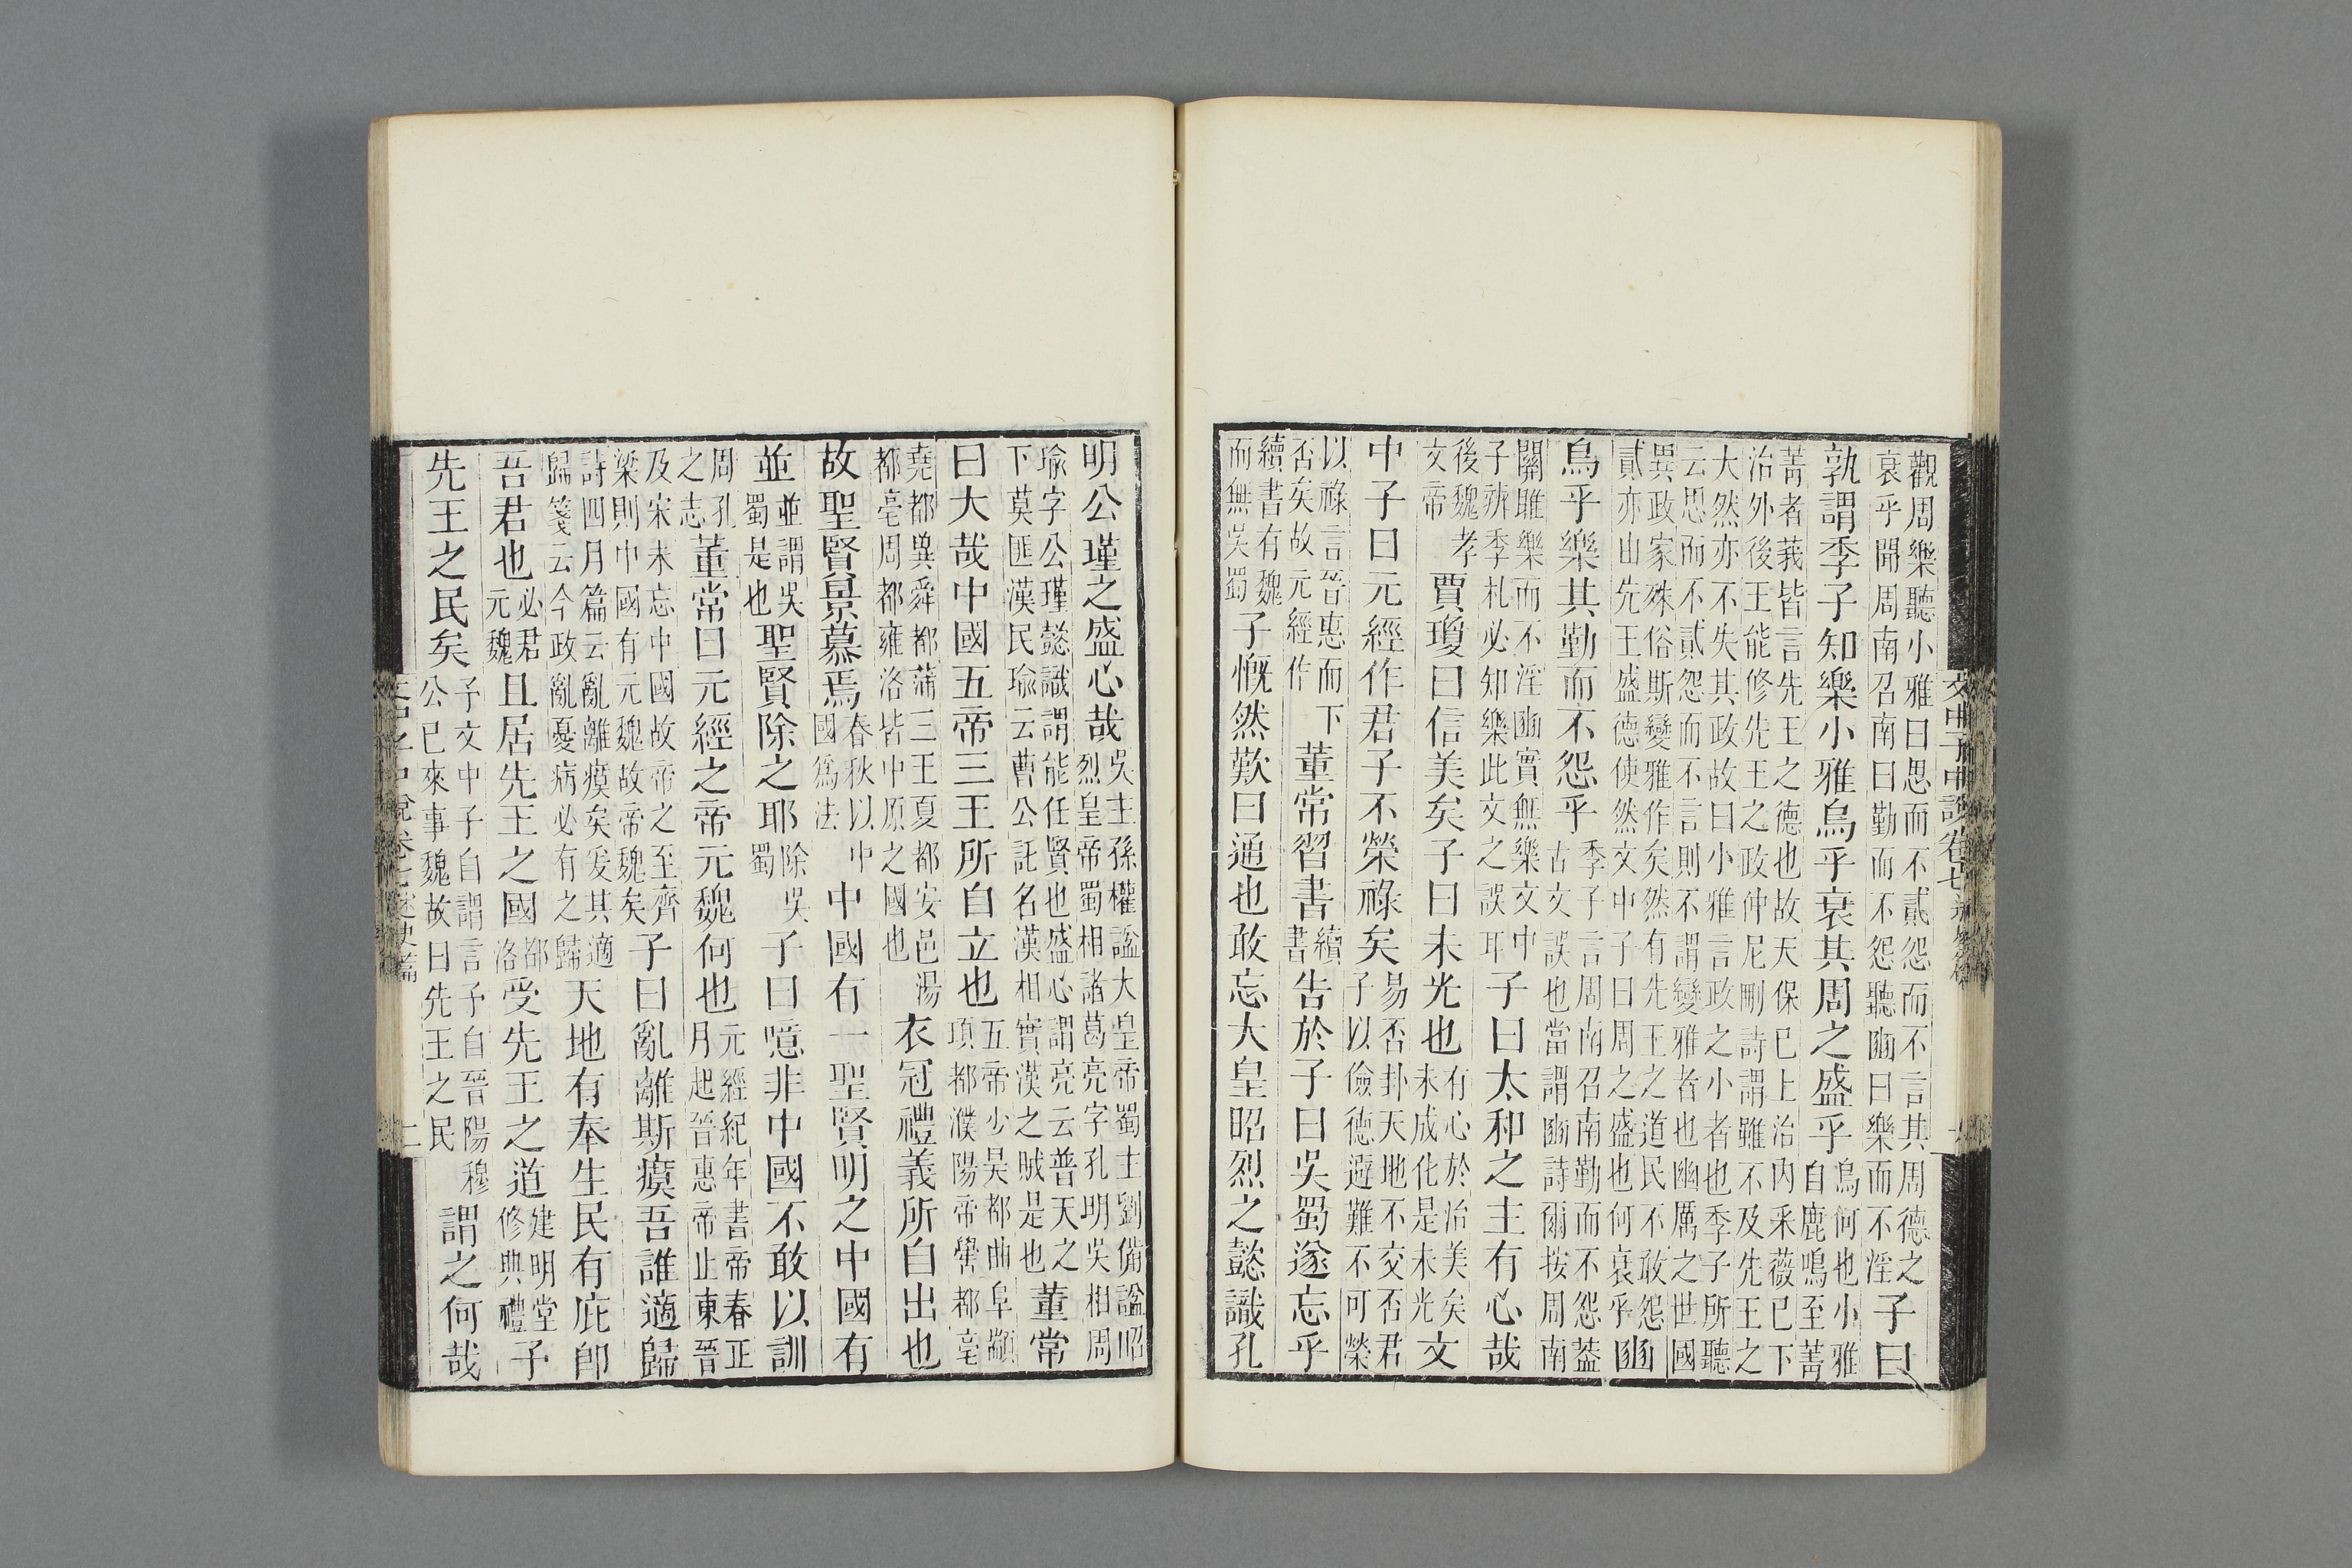 文中子中說卷七
觀周樂聽小雅曰思而不貳怨而不言其周德之衰乎聞周南召南曰勤而不怨聽豳曰樂而不淫子曰
孰謂季子知樂小雅烏乎衰其周之盛乎烏何也小雅自鹿鳴至菁
菁者莪皆言先王之德也故天保已上治內采薇已下治外後王能修先王之政仲尼刪詩謂雖不及先王之
大然亦不失其政故曰小雅言政之小者也季子所聽云思而不貳怨而不言則不謂變雅者也幽厲之世國
異政家殊俗斯變雅作矣然有先王之道民不敢怨貳亦由先王盛德使然文中子曰周之盛也何衰乎豳
烏乎樂其勤而不怨乎季子言周南召南勤而不怨蓋古文誤也當謂豳詩爾按周南
關雎樂而不淫豳實無樂文中子辨季札必知樂此文之誤耳子曰太和之主有心哉
後魏孝文帝賈瓊曰信美矣子曰未光也有心於治美矣未成化是未光文
中子曰元經作君子不榮祿矣易否卦天地不交否君子以儉德避難不可榮
以祿言晉惠而下否矣故元經作董常習書續書告於子曰吳蜀遂忘乎
續書有魏而無吳蜀子慨然歎曰通也敢忘大皇昭烈之懿識孔
明公瑾之盛心哉吳主孫權諡大皇帝蜀主劉備諡昭烈皇帝蜀相諸葛亮字孔明吳相周
瑜字公瑾懿識謂能任賢也盛心謂亮云普天之下莫匪漢民瑜云曹公託名漢相實漢之賊是也董常
曰大哉中國五帝三王所自立也五帝少昊都曲阜顓項都濮陽帝嚳都亳
堯都兾舜都蒲三王夏都安邑湯都亳周都雍洛皆中原之國也衣冠禮義所自出也
故聖賢景慕焉春秋以中國爲法中國有一聖賢明之中國有
並並謂吳蜀是也聖賢除之耶除吳蜀子曰噫非中國不敢以訓
周孔之志董常曰元經之帝元魏何也元經紀年書帝春正月起晉惠帝止東晉
及宋未忘中國故帝之至齊梁則中國有元魏故帝魏矣子曰亂離斯瘼吾誰適歸
詩四月篇云亂離瘼矣爰其適歸箋云今政亂憂病必有之歸天地有奉生民有庇卽
吾君也必君元魏且居先王之國都洛受先王之道建明堂修典禮子
先王之民矣子文中子自謂言子自晉陽穆公已來事魏故曰先王之民謂之何哉
文中子中說卷七述史篇 二